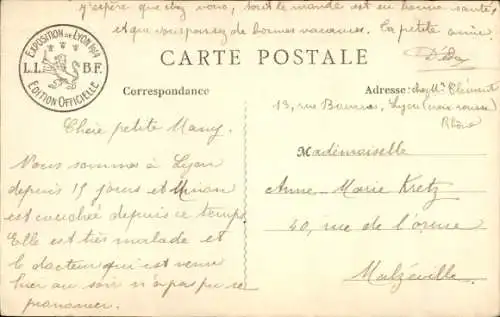 j'espère que chez vous, tout le monde est en bonne santé,
et que vous passez de bonnes vacances. Ta petite amie
Désy
EXPOSITION DE LYON 1914
L.L. B.F.
ÉDITION OFFICIELLE
CARTE POSTALE
Correspondance
Adresse: chez Mr Clément
13, rue Lyon (croix rousse)
Rhône
Chère petite Many.
Nous sommes à Lyon
depuis 15 jours et Minan
est couchée depuis ce temps.
Elle est très malade et
le docteur qui est venu
hier au soir n'a pas pu se
prononcer.
Mademoiselle
Anne-Marie Kretz
40, rue de l'orme
Malzéville